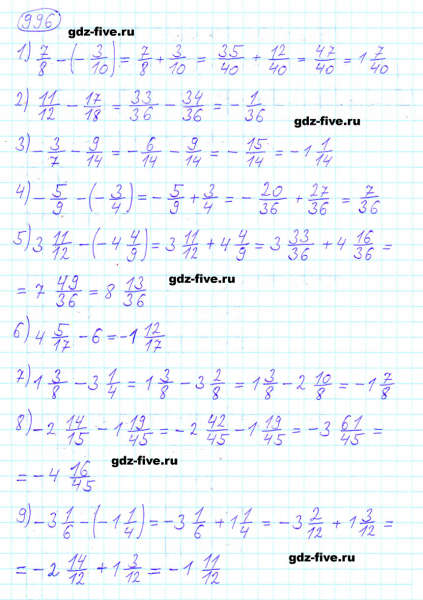 996
gdz-five.ru
1) 7/8 - (-3/10) = 7/8 + 3/10 = 35/40 + 12/40 = 47/40 = 1 7/40
2) 11/12 - 17/18 = 33/36 - 34/36 = -1/36
gdz-five.ru
3) -3/7 - 9/14 = -6/14 - 9/14 = -15/14 = -1 1/14
4) -5/9 - (-3/4) = -5/9 + 3/4 = -20/36 + 27/36 = 7/36
5) 3 11/12 - (-4 4/9) = 3 11/12 + 4 4/9 = 3 33/36 + 4 16/36 =
= 7 49/36 = 8 13/36
gdz-five.ru
6) 4 5/17 - 6 = -1 12/17
gdz-five.ru
7) 1 3/8 - 3 1/4 = 1 3/8 - 3 2/8 = 1 3/8 - 2 10/8 = -1 7/8
8) -2 14/15 - 1 19/45 = -2 42/45 - 1 19/45 = -3 61/45 =
gdz-five.ru
= -4 16/45
9) -3 1/6 - (-1 1/4) = -3 1/6 + 1 1/4 = -3 2/12 + 1 3/12 =
= -2 14/12 + 1 3/12 = -1 11/12
gdz-five.ru